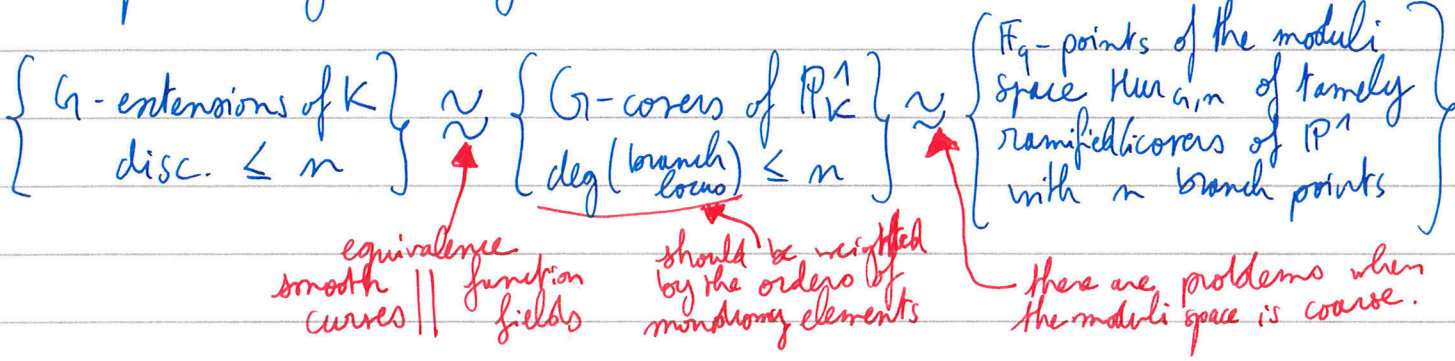 { G-extensions of K
disc. ≤ n } ≈ { G-covers of P¹_K
deg(branch locus) ≤ n } ≈ { F_q-points of the moduli
space Hur_G,n of tamely
ramified covers of P¹
with n branch points }
equivalence
smooth curves || function fields
should be weighted
by the orders of
monodromy elements
there are problems when
the moduli space is coarse.